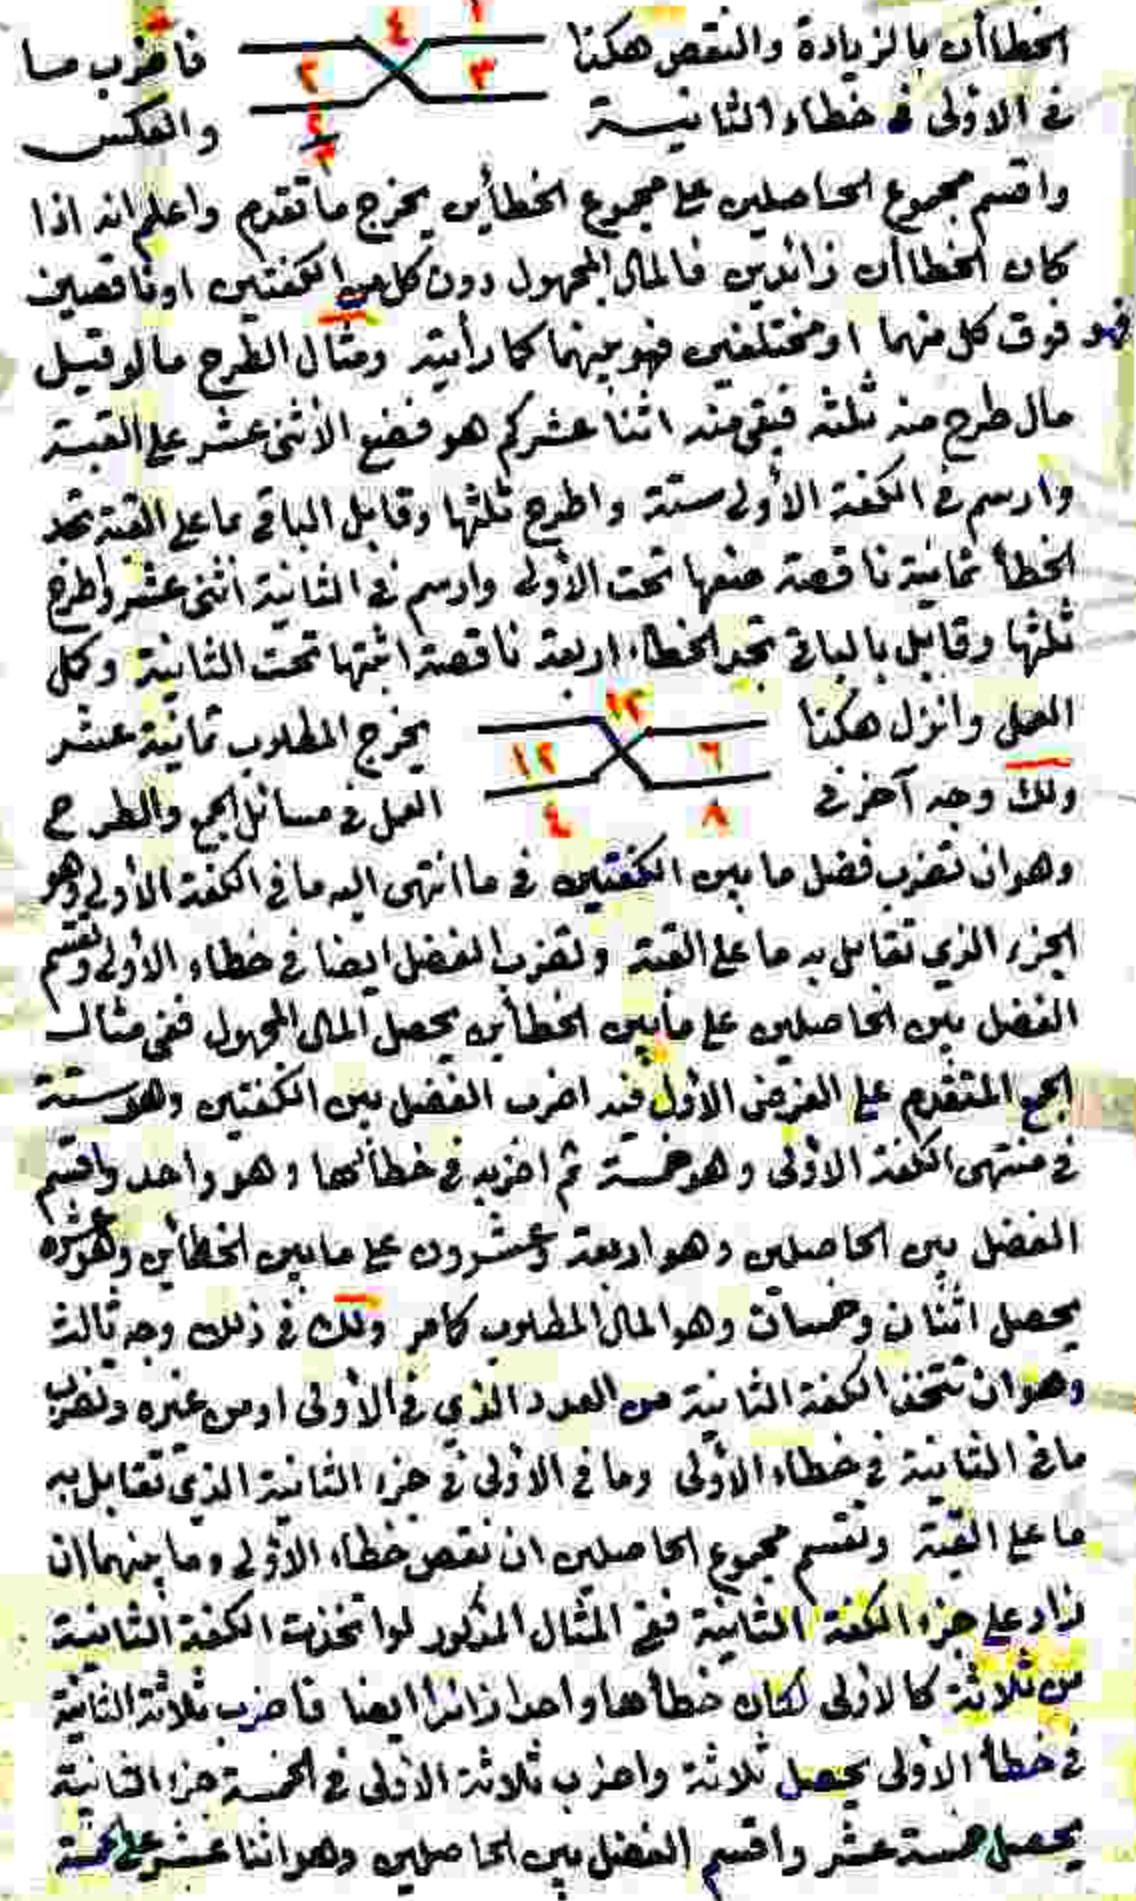 الخطاأن بالزيادة والنقص هكذا ٤ ٢ ٣ فاضرب ما
في الاولى في خطاء الثانية والعكس
واقسم مجموع الحاصلين على مجموع الخطأين يخرج ما تقدم واعلم انه اذا
كان الخطاأن زائدين فالمال المجهول دون كل من الكفتين او ناقصين
فهو فوق كل منهما او مختلفين فهو بينهما كما رأيته ومثال الطرح ما لو قيل
مال طرح منه ثلثه فبقي منه اثنا عشر كم هو فضع الاثنى عشر على القبة
وارسم في الكفة الأولى ستة واطرح ثلثها وقابل الباقي بما على القبة تجد
الخطأ ثمانية ناقصة ضعها تحت الأولى وارسم في الثانية اثنى عشر واطرح
ثلثها وقابل بالباقي تجد الخطاء اربعة ناقصة اثبتها تحت الثانية وكل
العمل وانزل هكذا ١٢ ٦ ١٢ ٨ ٤ يخرج المطلوب ثمانية عشر
ولك وجه آخر في العمل في مسائل الجمع والطرح
وهو ان تضرب فضل ما بين الكفتين في ما انتهى اليه ما في الكفة الأولى وهو
الجزء الذي تقابل به ما على القبة وتضرب الفضل ايضا في خطاء الأولى وتقسم
الفضل بين الحاصلين على ما بين الخطأين يحصل المال المجهول ففي مثال
الجمع المتقدم على الفرض الأول فيه اضرب الفضل بين الكفتين وهو ستة
في منتهى الكفة الاولى وهو خمسة ثم اضربه في خطائها وهو واحد واقسم
الفضل بين الحاصلين وهو اربعة وعشرون على ما بين الخطأين وهو عشرة
يحصل اثنان وخمسان وهو المال المطلوب كامر ولك في ذلك وجه ثالث
وهو ان تتخذ الكفة الثانية من العدد الذي في الأولى او من غيره وتضرب
ما في الثانية في خطاء الأولى وما في الاولى في جزء الثانية الذي تقابل به
ما على القبة وتقسم مجموع الحاصلين ان نقص خطاء الاولى وما بينهما ان
زاد على جزء الكفة الثانية ففي المثال المذكور لو اتخذت الكفة الثانية
من ثلاثة كالأولى لكان خطأها واحدا زائدا ايضا فاضرب ثلاثة الثانية
في خطأ الأولى يحصل ثلاثة واضرب ثلاثة الأولى في الخمسة جزء الثانية
يحصل خمسة عشر واقسم الفضل بين الحاصلين وهو اثنا عشر على خمسة